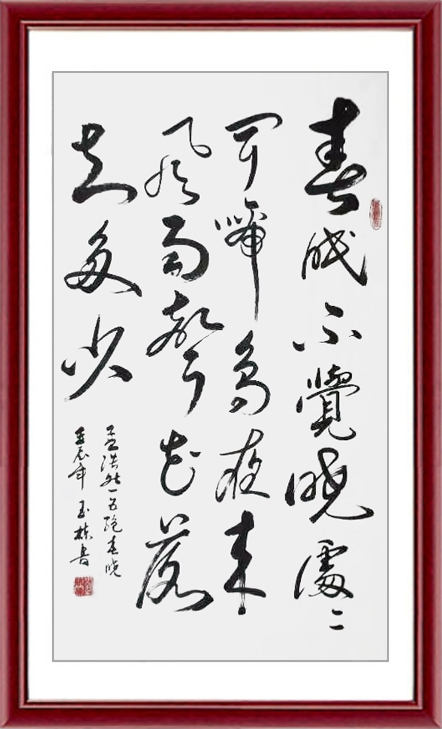 春眠不覺曉處々
聞啼鳥夜来
風雨聲花落
知多少
孟浩然五絕春曉
壬辰年玉栋書